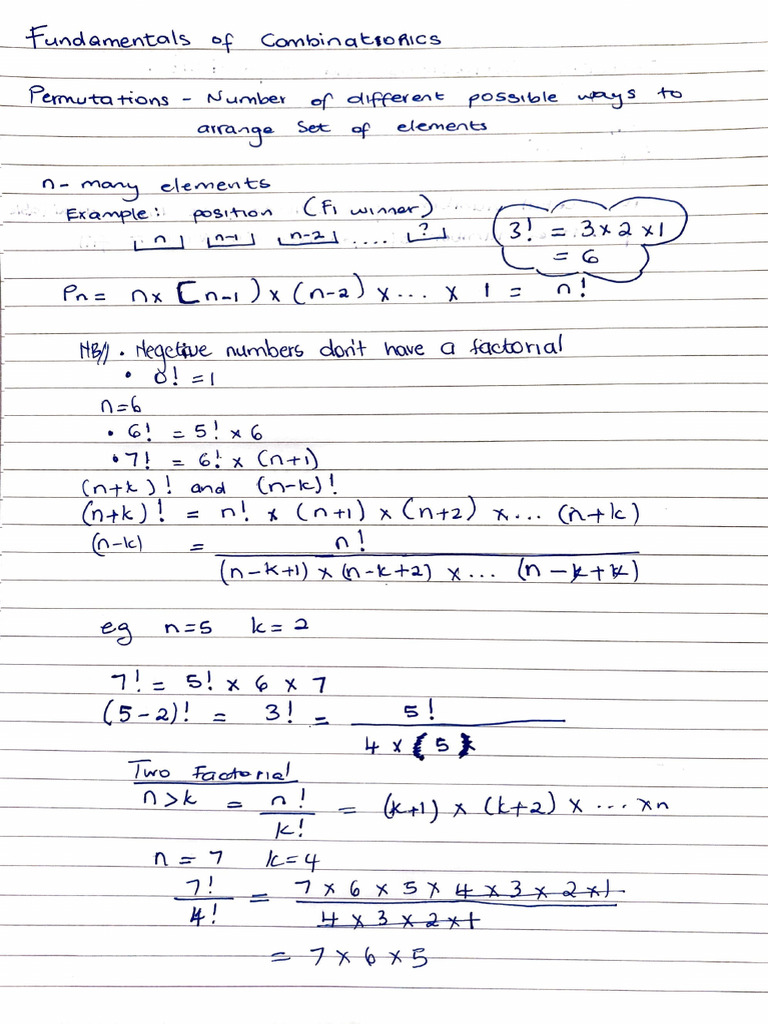 Fundamentals of Combinatorics
Permutations - Number of different possible ways to
arrange set of elements
n- many elements
Example: position (F1 winner)
n n-1 n-2 .... ?
3! = 3 × 2 × 1
= 6
Pn = n × [n-1) × (n-2) × ... × 1 = n!
NB// • Negetive numbers don't have a factorial
• 0! = 1
n=6
• 6! = 5! × 6
• 7! = 6! × (n+1)
(n+k)! and (n-k)!
(n+k)! = n! × (n+1) × (n+2) × ... (n+k)
(n-k) = n!
(n-k+1) × (n-k+2) × ... (n-k+k)
eg n=5 k=2
7! = 5! × 6 × 7
(5-2)! = 3! = 5!
4 × (5)
Two Factorial
n>k = n! = (k+1) × (k+2) × ... ×n
k!
n = 7 k=4
7! = 7 × 6 × 5 × 4 × 3 × 2 × 1
4! 4 × 3 × 2 × 1
= 7 × 6 × 5